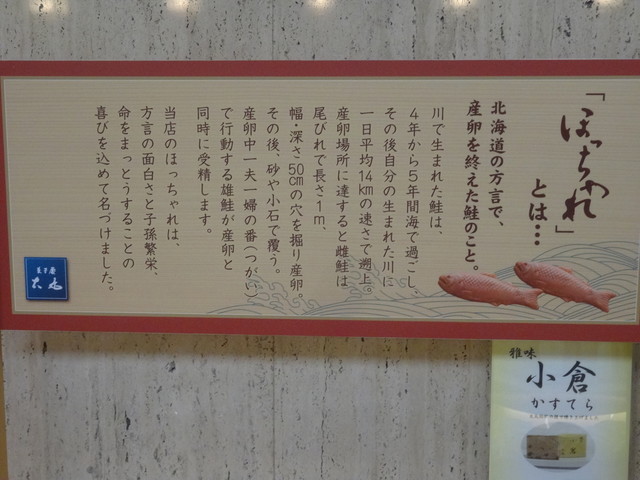 「ほっちゃれ」
とは…
北海道の方言で、
産卵を終えた鮭のこと。
川で生まれた鮭は、
4年から5年間海で過ごし、
その後自分の生まれた川に
一日平均14kmの速さで遡上。
産卵場所に達すると雌鮭は
尾びれで長さ1m、
幅・深さ50cmの穴を掘り産卵。
その後、砂や小石で覆う。
産卵中一夫一婦の番(つがい)
で行動する雄鮭が産卵と
同時に受精します。
当店のほっちゃれは、
方言の面白さと子孫繁栄、
命をまっとうすることの
喜びを込めて名づけました。
雅味
小倉
かすてら